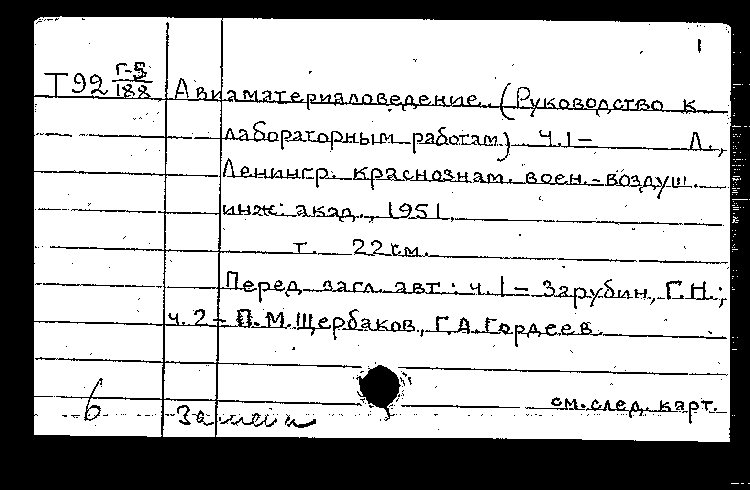 1
Т92 Г-5/188 Авиаматериаловедение. (Руководство к
лабораторным работам) Ч.1– Л.,
Ленингр. краснознам. воен.-воздуш.
инж. акад., 1951.
т. 22см.
Перед загл. авт.: ч.1– Зарубин, Г.Н.;
ч.2– П.М.Щербаков, Г.А.Гордеев.
см.след. карт.
6 Замена